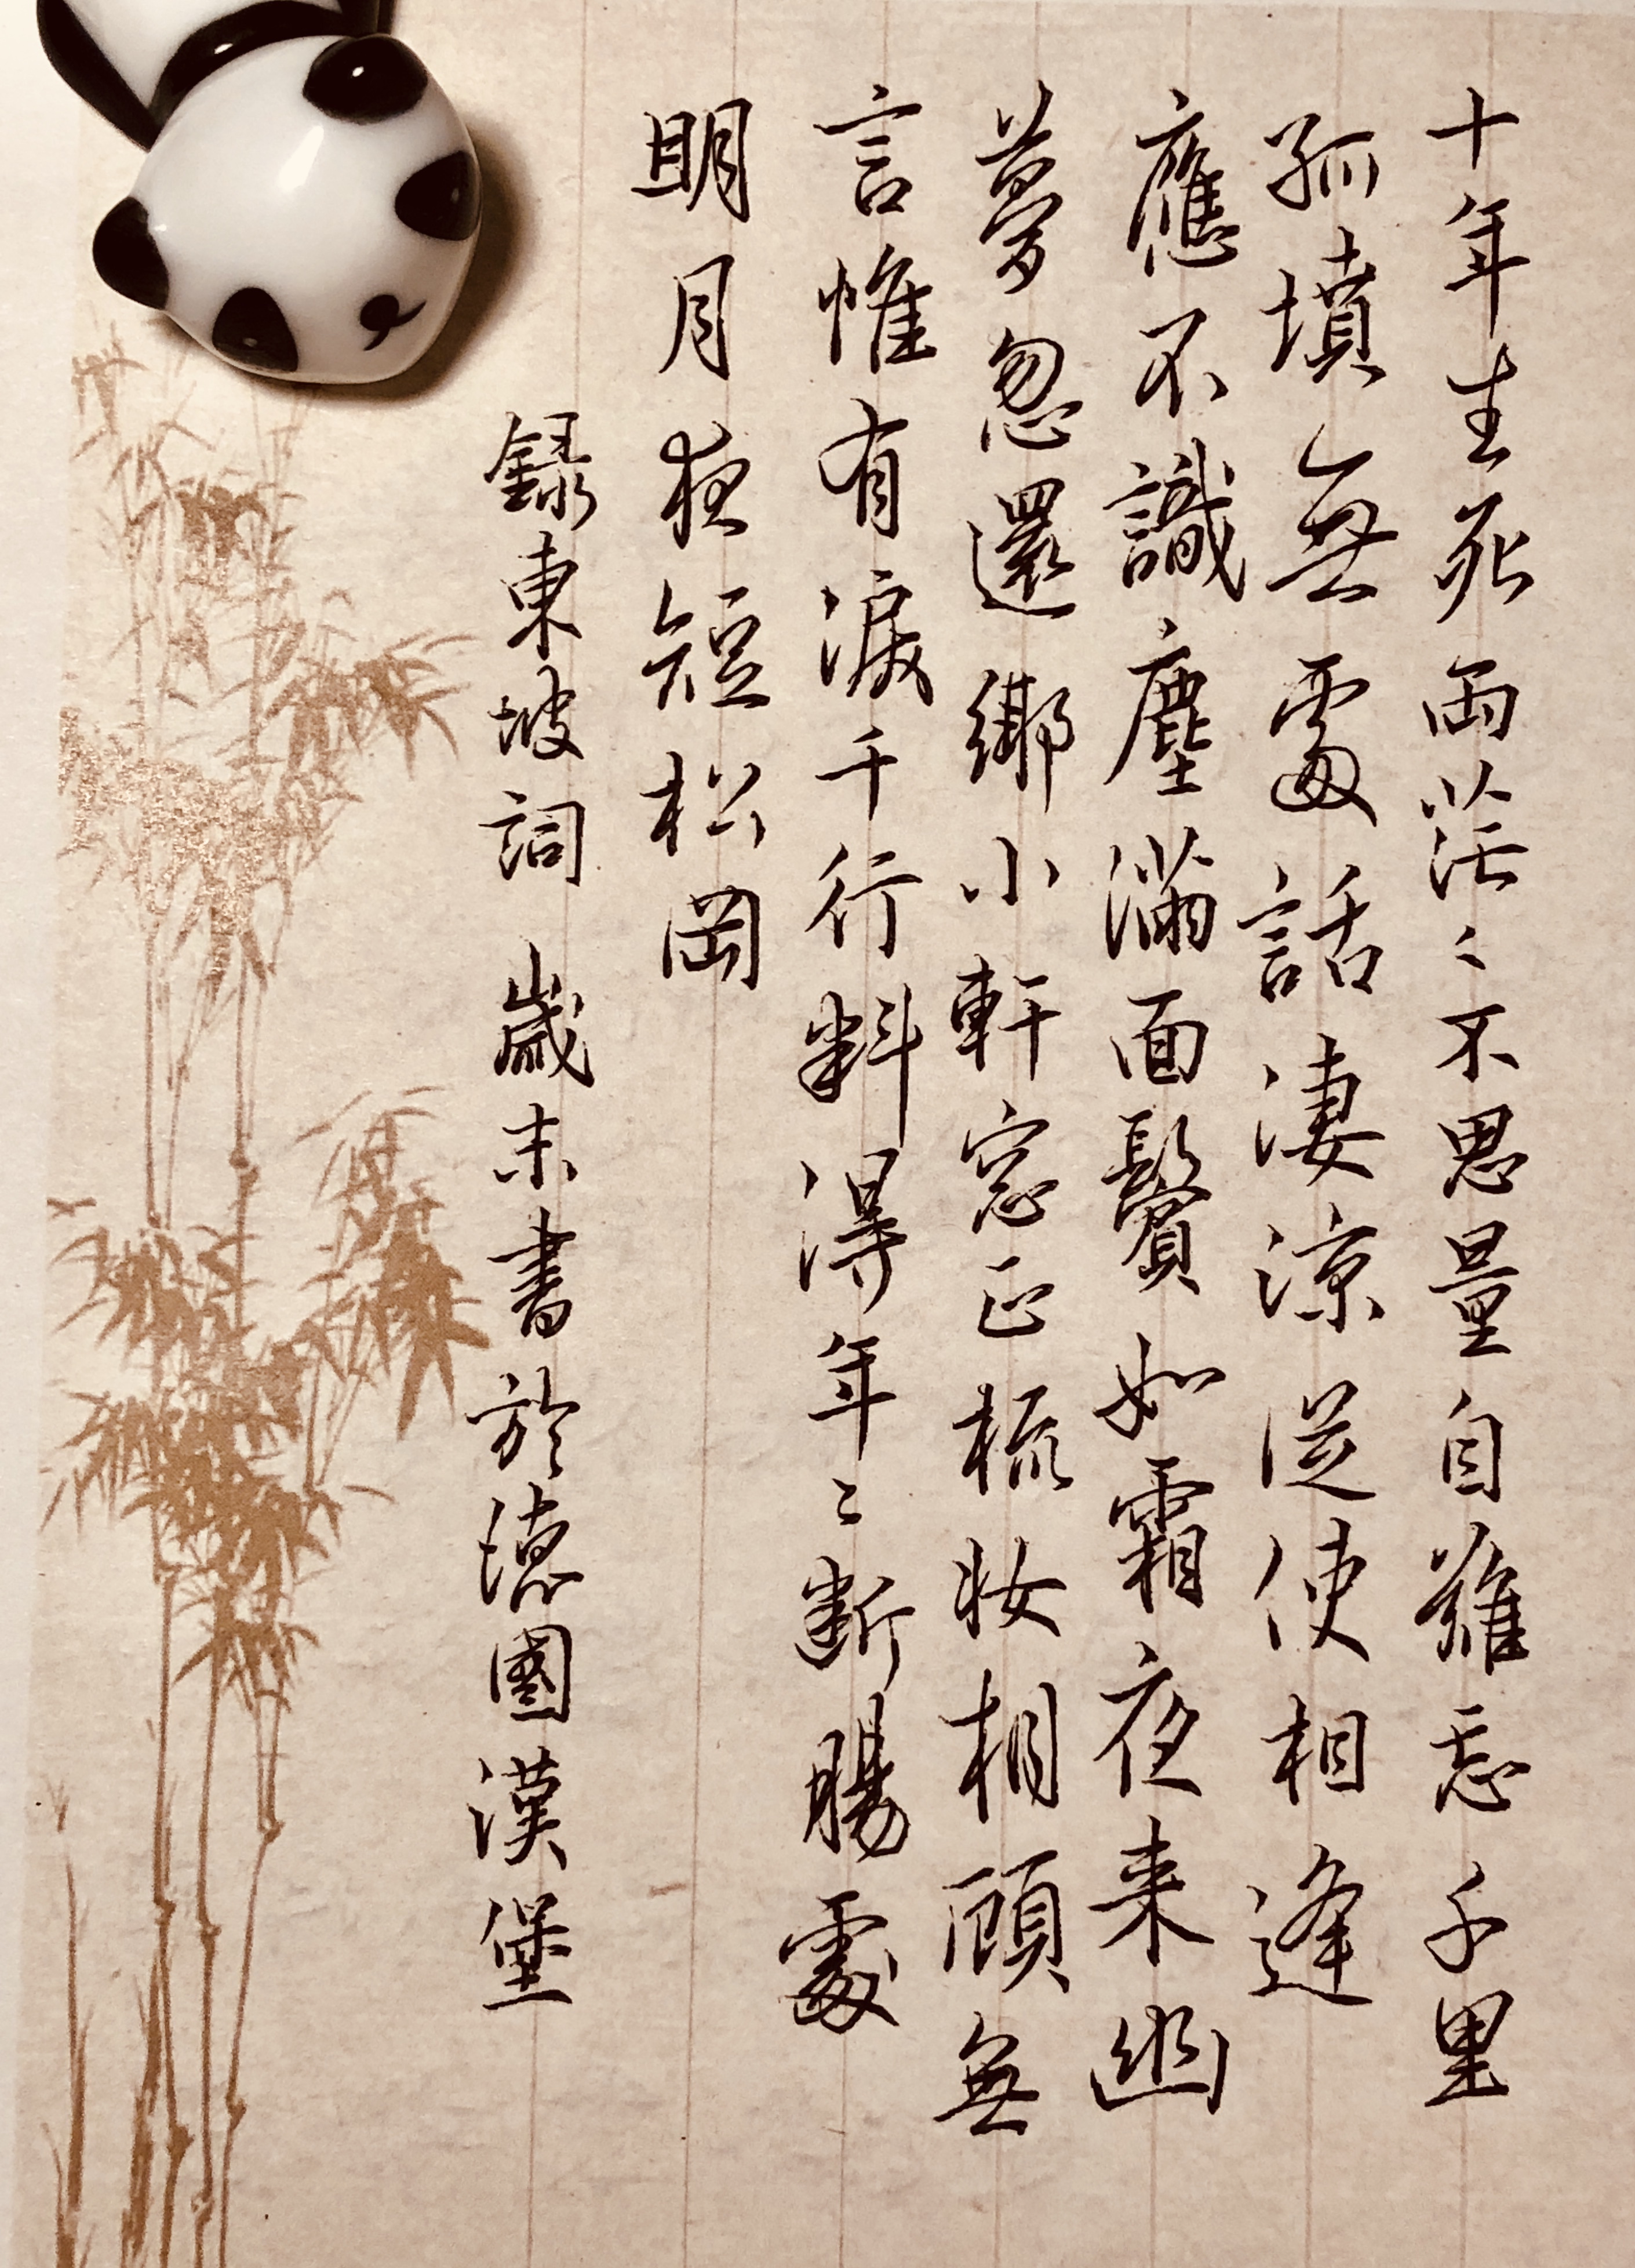 十年生死兩茫〻不思量自難忘千里
孤墳無處話淒涼從使相逢
應不識塵滿面鬢如霜夜来幽
夢忽還鄉小軒窓正梳妝相顧無
言惟有淚千行料得年〻断腸處
明月夜短松岡
錄東坡詞 歲末書於德國漢堡